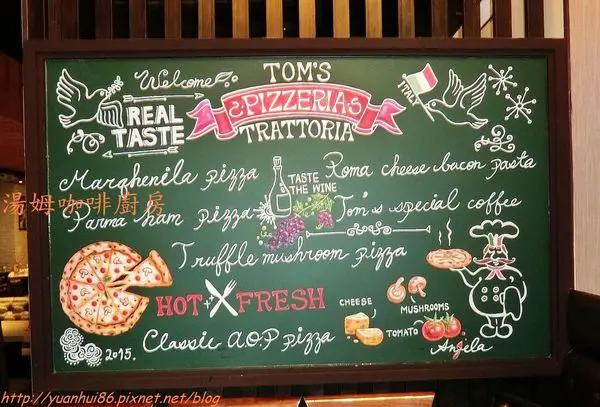 Welcome
TOM'S
PIZZERIA
TRATTORIA
REAL
TASTE
ITALY
Marghenila pizza
TASTE
THE WINE
Roma cheese bacon pasta
湯姆咖啡廚房
Parma ham pizza
Tom's special coffee
Truffle mushroom pizza
HOT FRESH
CHEESE
MUSHROOMS
TOMATO
Classic a.o.p pizza
Angela
2015.
http://yuanhui86.pixnet.net/blog